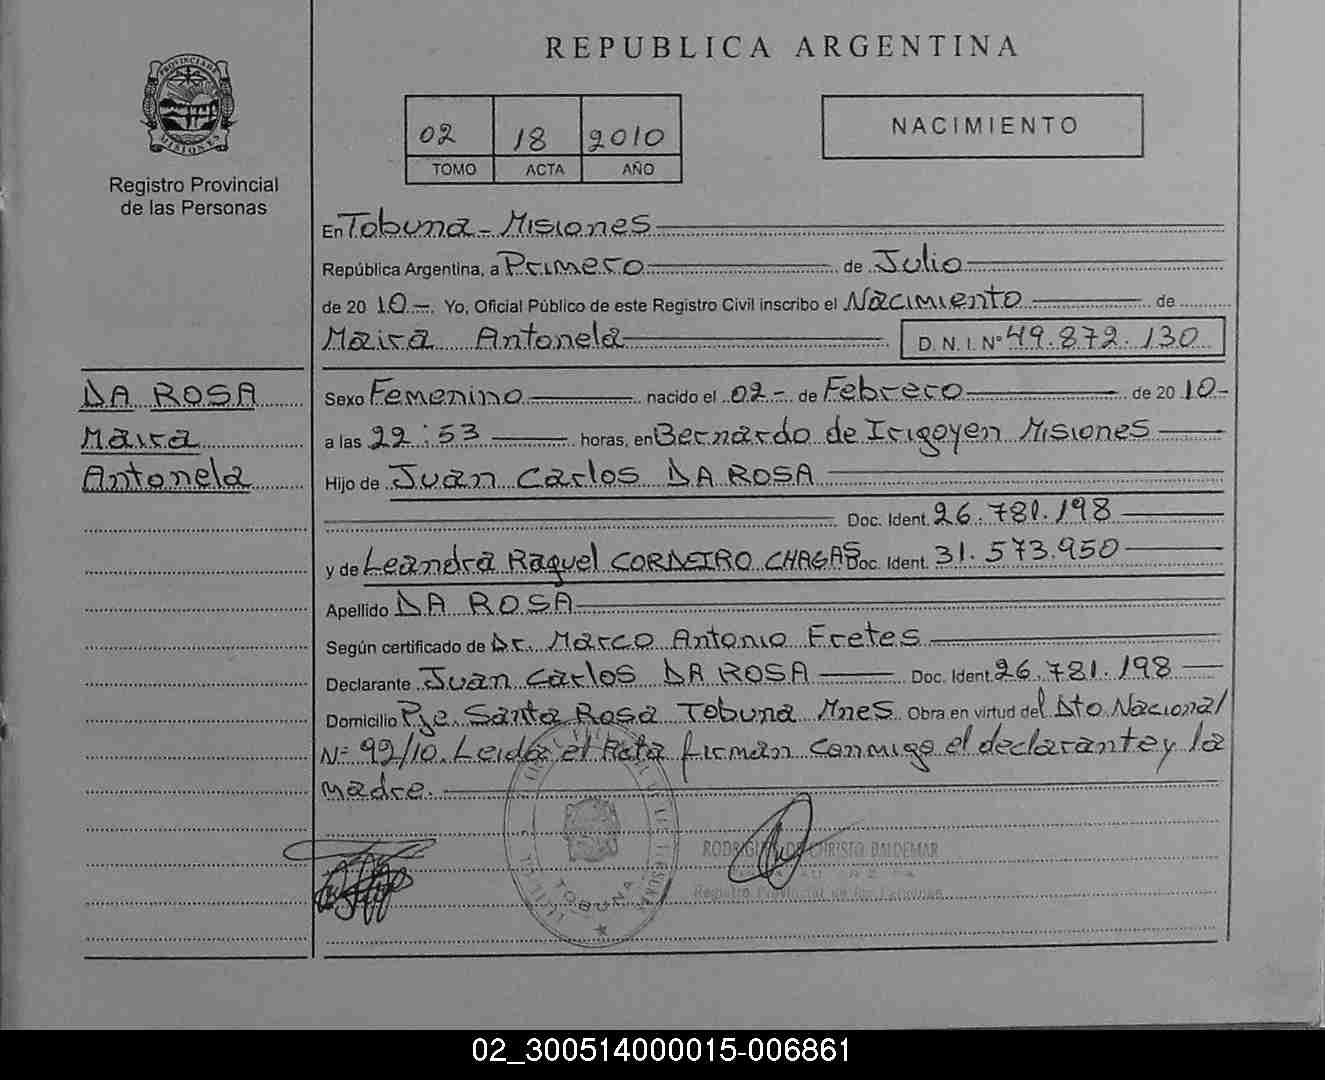 REPUBLICA ARGENTINA
PROVINCIA DE
MISIONES
Registro Provincial
de las Personas
02 18 2010
TOMO ACTA AÑO
NACIMIENTO
En Tobuna - Misiones
República Argentina, a Primero de Julio
de 20 10 -. Yo, Oficial Público de este Registro Civil inscribo el Nacimiento de
Maira Antonela D. N. I. N° 49.872.130
DA ROSA
Maira
Antonela
Sexo Femenino nacido el 02 - de Febrero de 20 10 -
a las 22:53 horas, en Bernardo de Irigoyen Misiones
Hijo de Juan Carlos DA ROSA
Doc. Ident. 26.781.198
y de Leandra Raquel CORDEIRO CHAGAS Doc. Ident. 31.573.950
Apellido DA ROSA
Según certificado de Dr. Marco Antonio Fretes
Declarante Juan Carlos DA ROSA Doc. Ident. 26.781.198
Domicilio Pje. Santa Rosa Tobuna Mnes Obra en virtud del Dto. Nacional
N° 92/10. Leida el Acta firman conmigo el declarante y la
madre.
TOBUNA
RODRIGUEZ DE CHRISTO BALDEMAR
Registro Provincial de las Personas
02_300514000015-006861